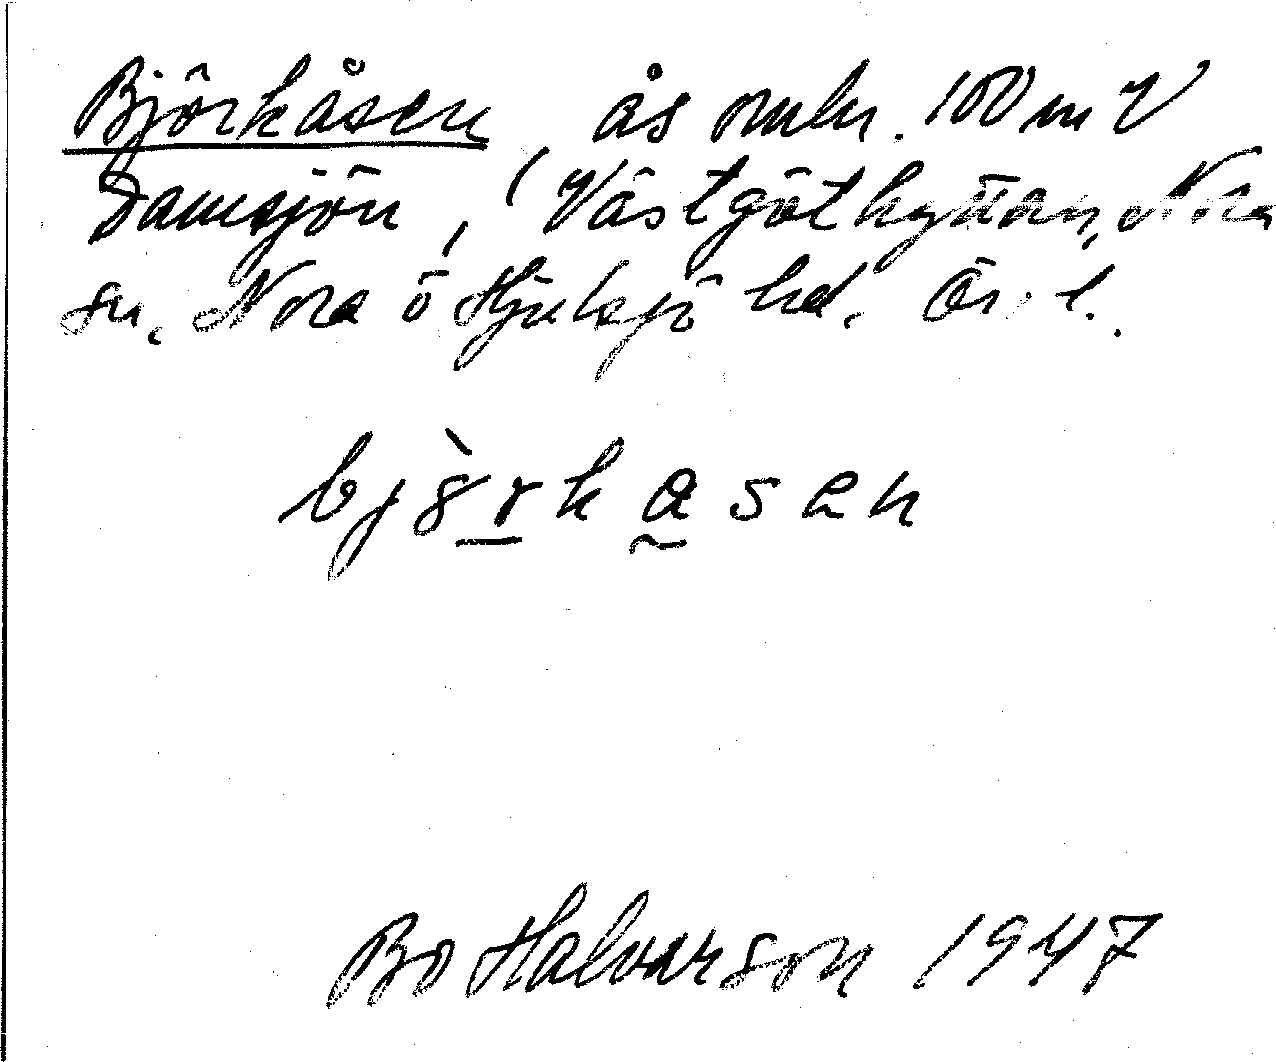 Björkåsen, ås omkr. 100 m V
Damsjön, Västgöthyttan, Nora
sn. Nora o Hjulsjö hd. Ör. l.
bjò̈rkåsen
Bo Halvarson 1947